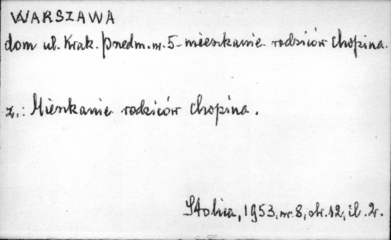 WARSZAWA
dom ul. Krak. Przedm. nr. 5 - mieszkanie rodziców Chopina.
z.: Mieszkanie rodziców Chopina.
Stolica, 1953, nr. 8, str. 12, il. 2.